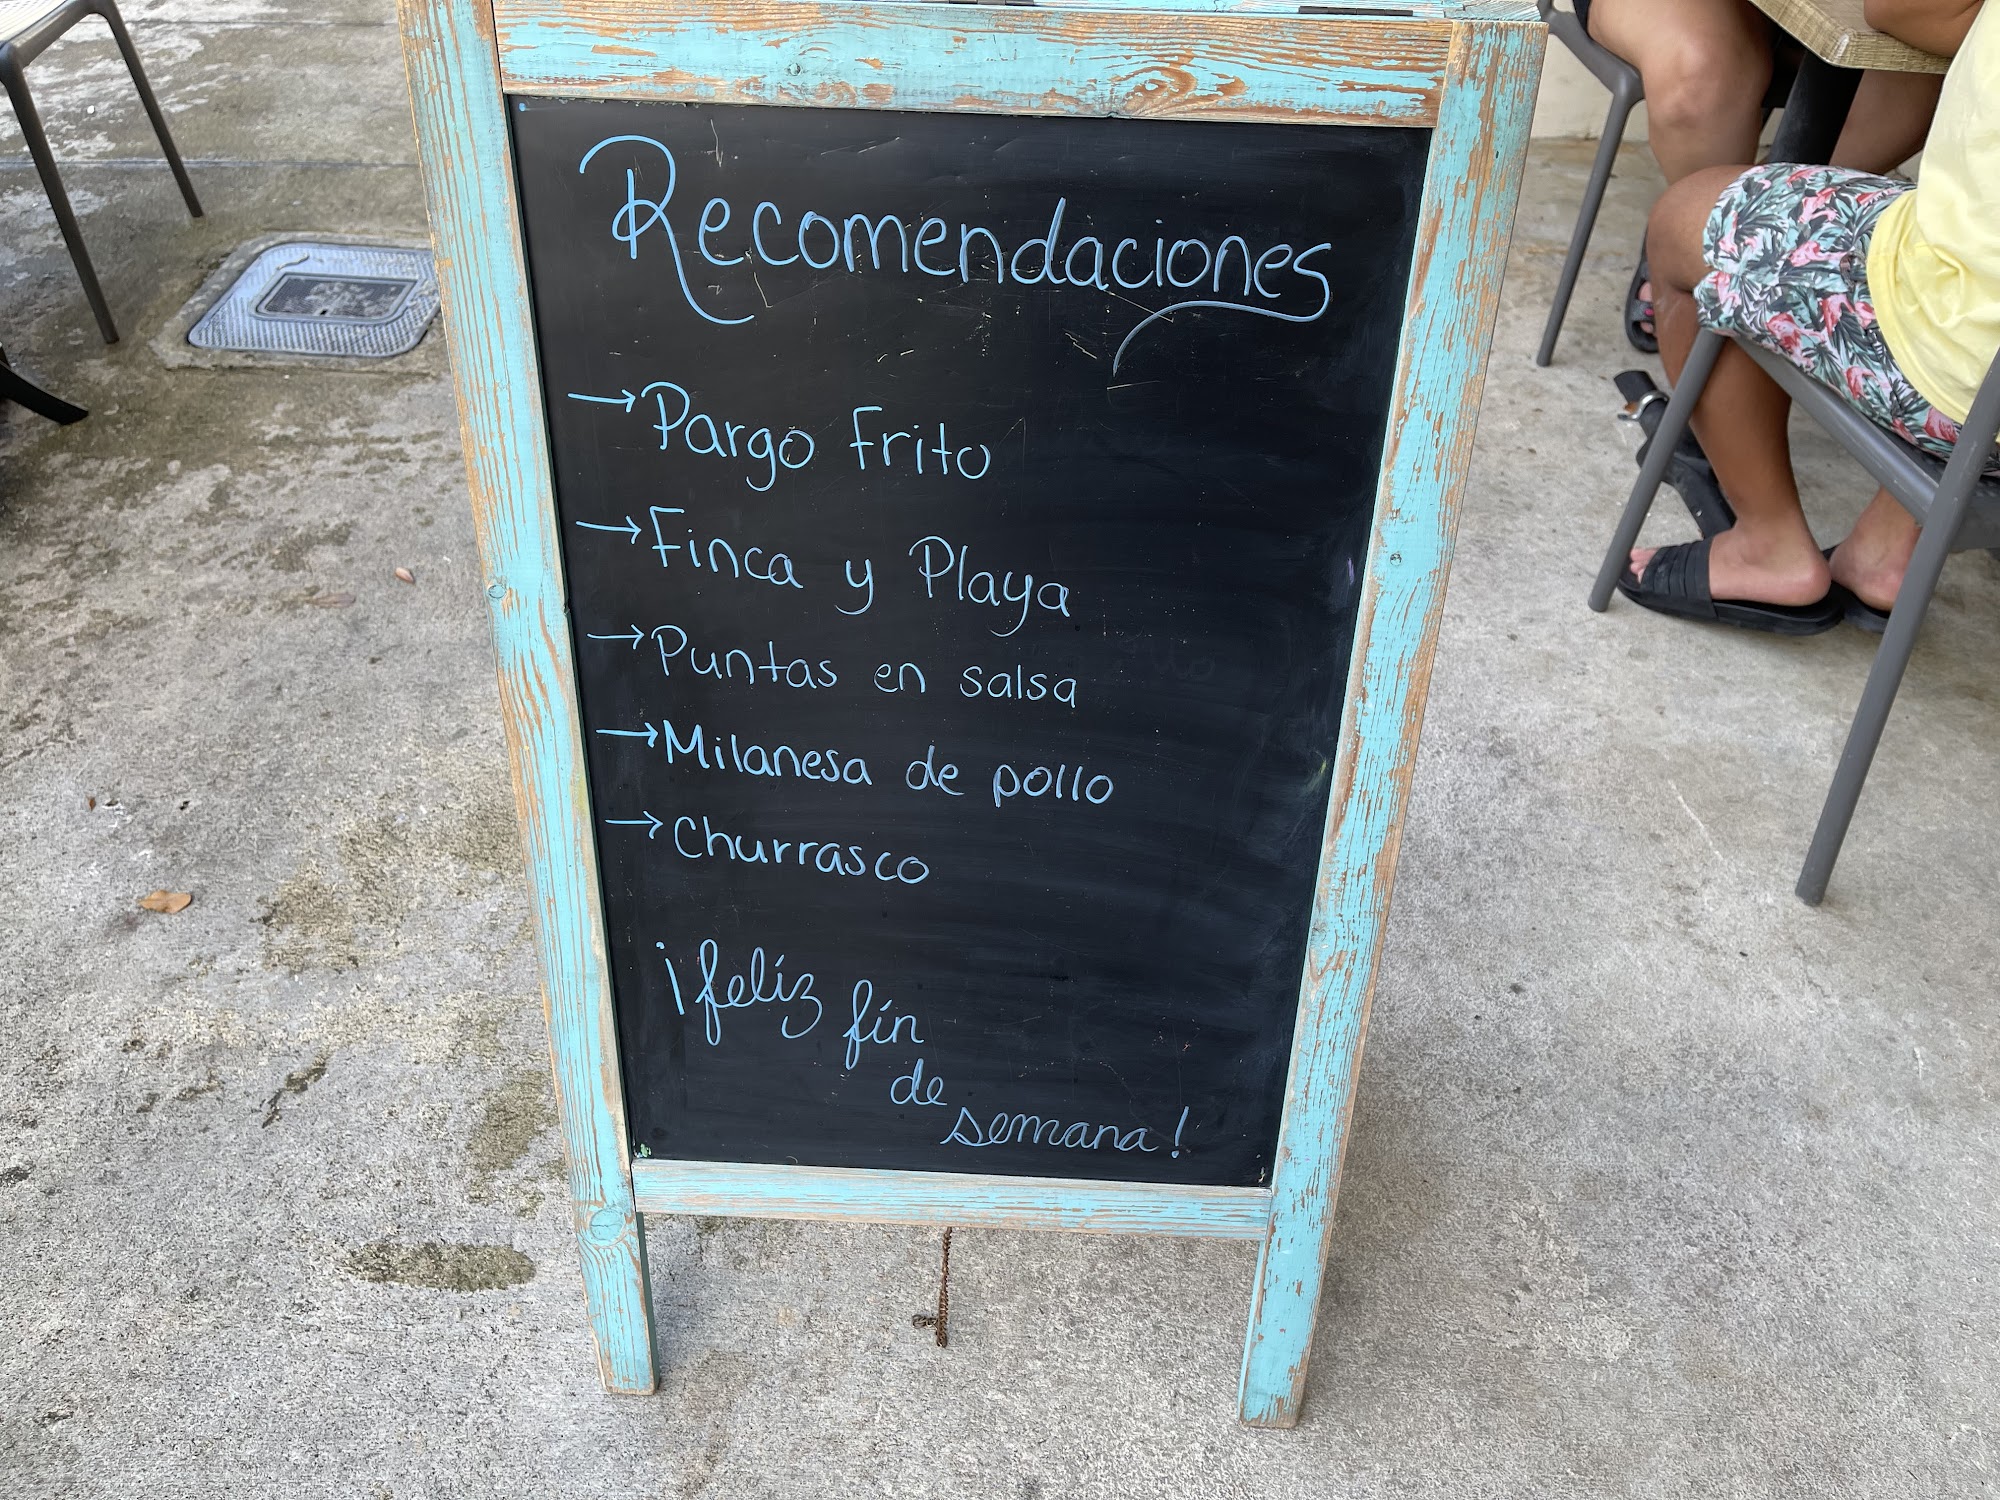 Recomendaciones
→ Pargo Frito
→ Finca y Playa
→ Puntas en salsa
→ Milanesa de pollo
→ Churrasco
¡feliz fin
de
semana!